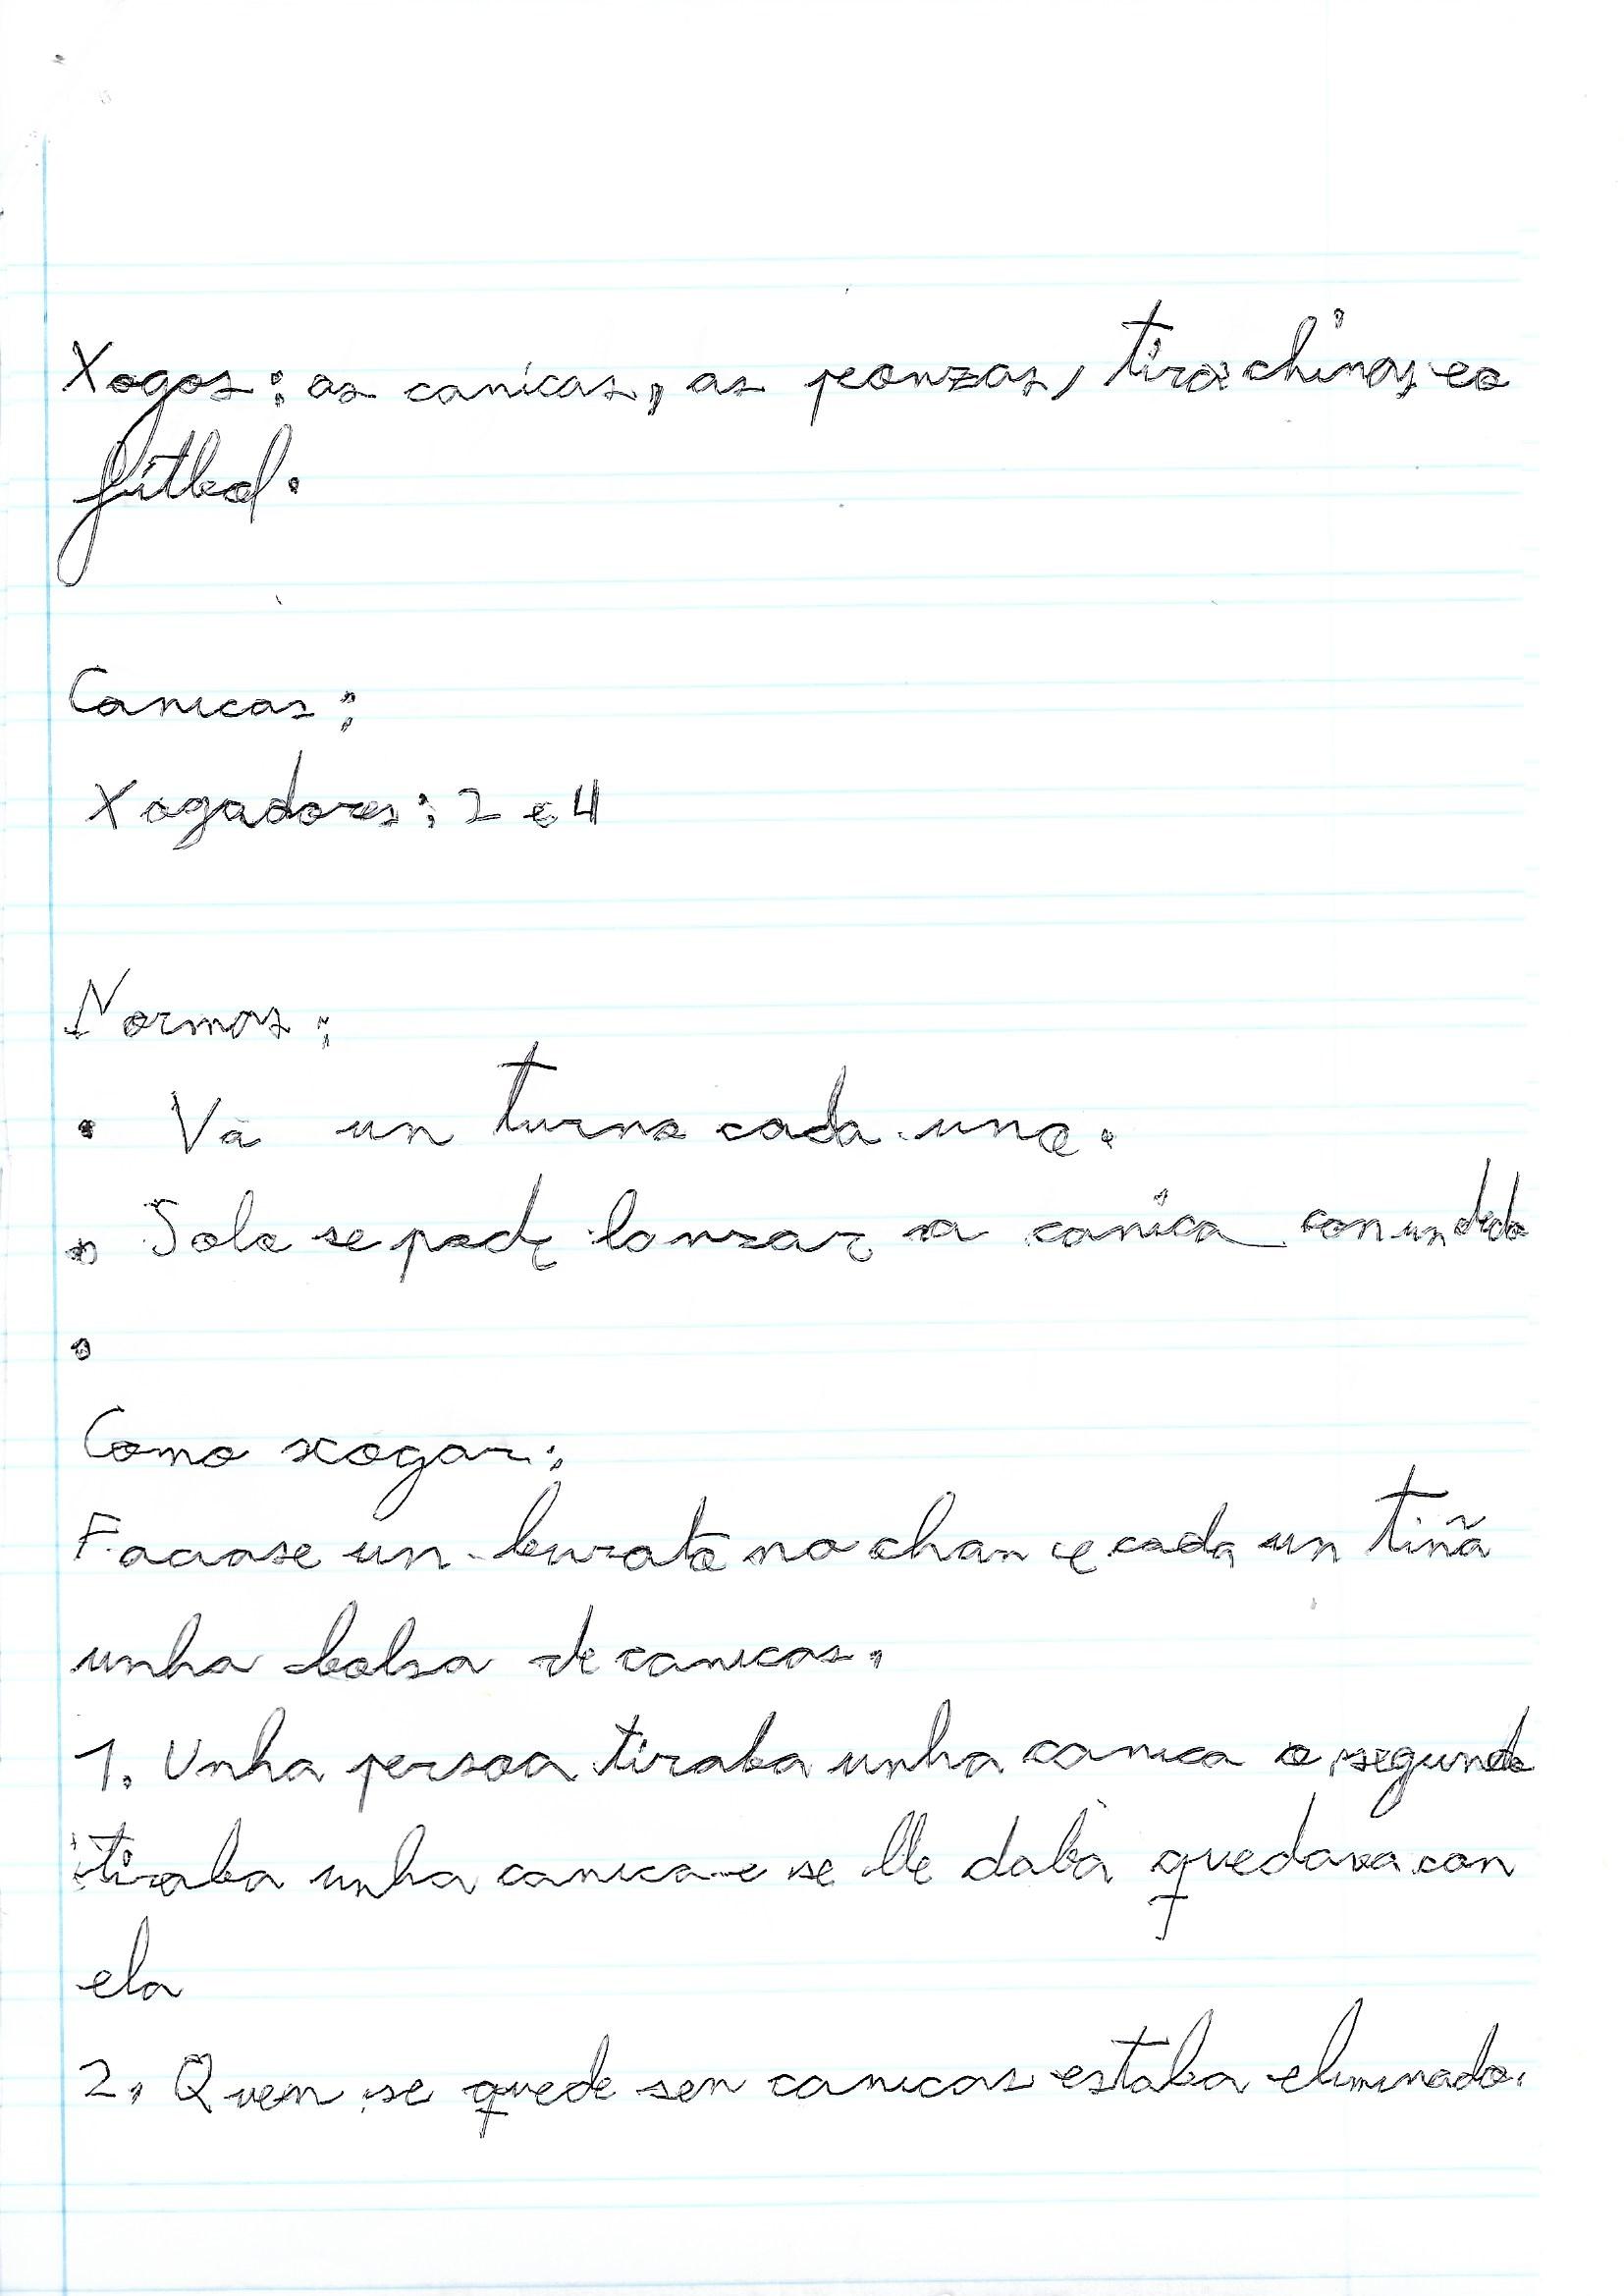 Xogos: as canicas, as peonzas, tirachinas e o
fútbol.
Canicas:
Xogadores: 2 e 4
Normas:
• Va un turno cada uno.
• Solo se pode lanzar a canica con un dedo
•
Como xogar:
Faciase un burato no chan e cada un tiña
unha bolsa de canicas.
1. Unha persoa tiraba unha canica o segundo
tiraba unha canica e se lle daba quedava con
ela
2. Quen se quede sen canicas estaba eliminado.